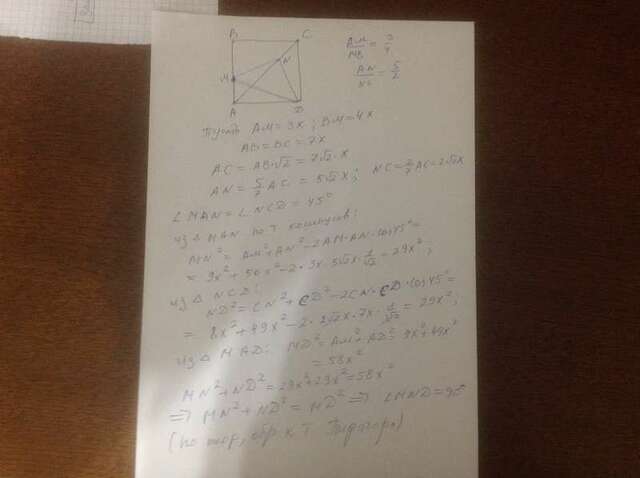 B C
M N
A D
AM/MB = 3/4
AN/NC = 5/2
Пусть AM = 3x ; BM = 4x
AB = BC = 7x
AC = AB·√2 = 7√2·x
AN = 5/7 AC = 5√2x ; NC = 2/7 AC = 2√2x
∠MAN = ∠NCD = 45°
из △MAN по т косинусов:
MN² = AM² + AN² - 2AM·AN·cos45° =
= 9x² + 50x² - 2·3x·5√2x·1/√2 = 29x² ;
из △NCD:
ND² = CN² + CD² - 2CN·CD·cos45° =
= 8x² + 49x² - 2·2√2x·7x·1/√2 = 29x² ;
из △MAD: MD² = AM² + AD² = 9x² + 49x²
= 58x²
MN² + ND² = 29x² + 29x² = 58x²
⇒ MN² + ND² = MD² ⇒ ∠MND = 90
(по теор, обр к т Пифагора)